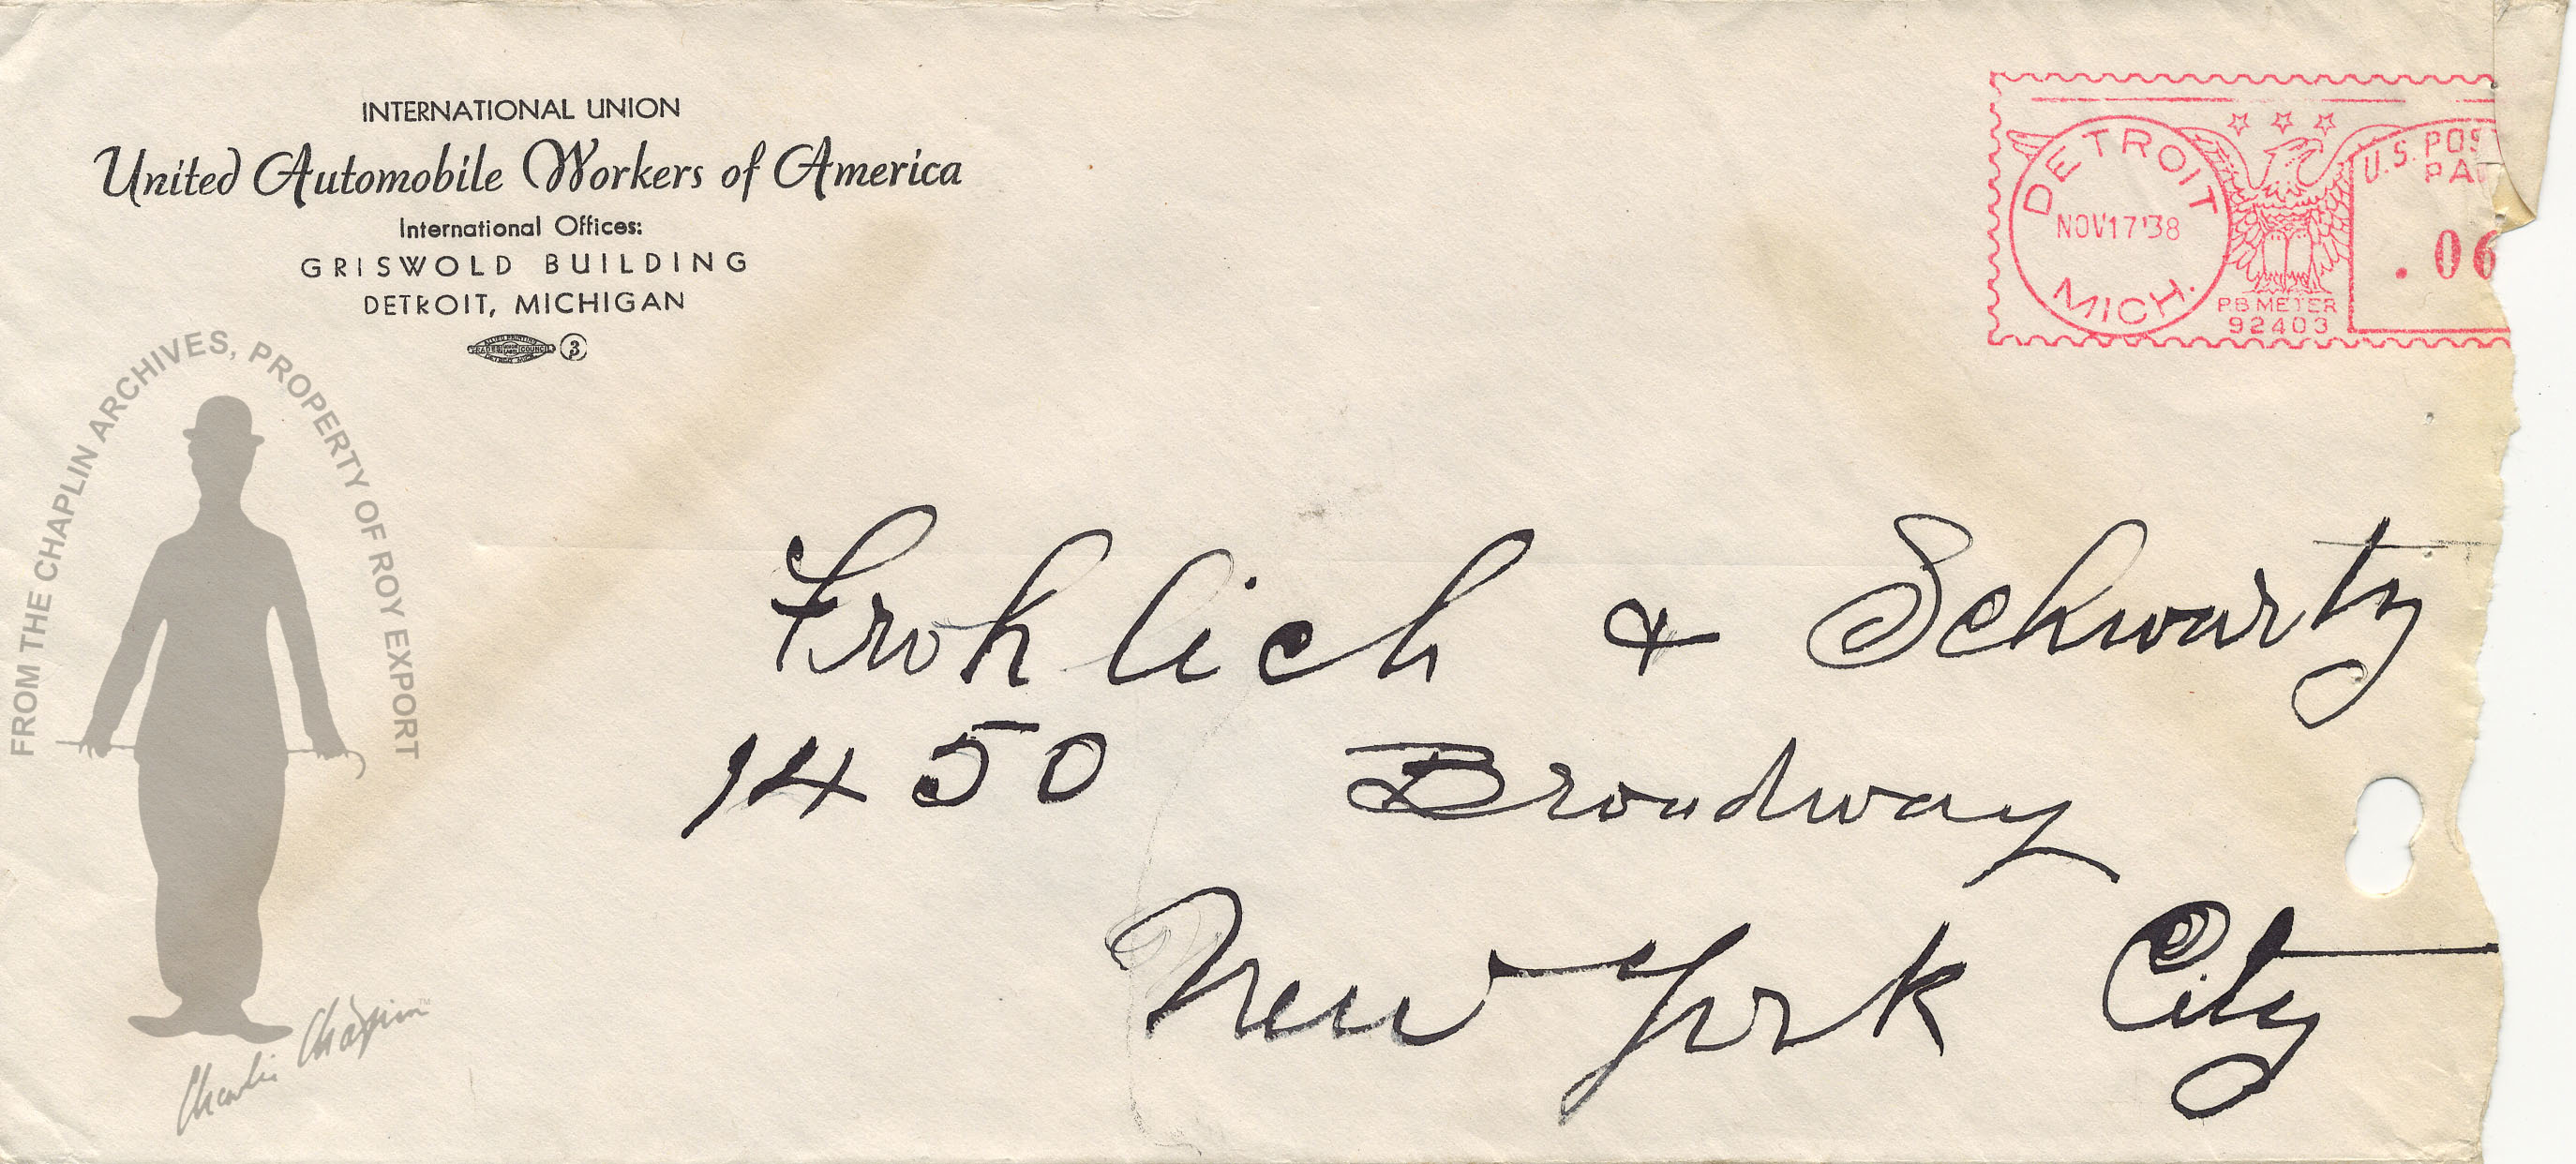 INTERNATIONAL UNION
United Automobile Workers of America
International Offices:
GRISWOLD BUILDING
DETROIT, MICHIGAN
TRADES UNION LABEL COUNCIL
3
DETROIT
NOV 17 '38
MICH.
P B METER
92403
U.S. POS
PA
.06
FROM THE CHAPLIN ARCHIVES, PROPERTY OF ROY EXPORT
Charlie Chaplin™
Frohlich & Schwartz
1450 Broadway
New York City